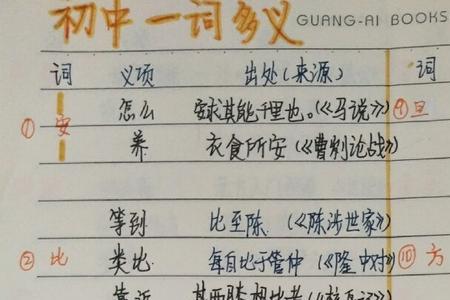 初中一词多义 GUANG-AI BOOKS
词 义项 出处(来源) 词
①安 怎么 安求其能千里也。(《马说》) ⑨旦
养 衣食所安(《曹刿论战》)
等到 比至陈 (《陈涉世家》)
②比 类比 每自比于管仲 (《隆中对》) ⑩方
靠近